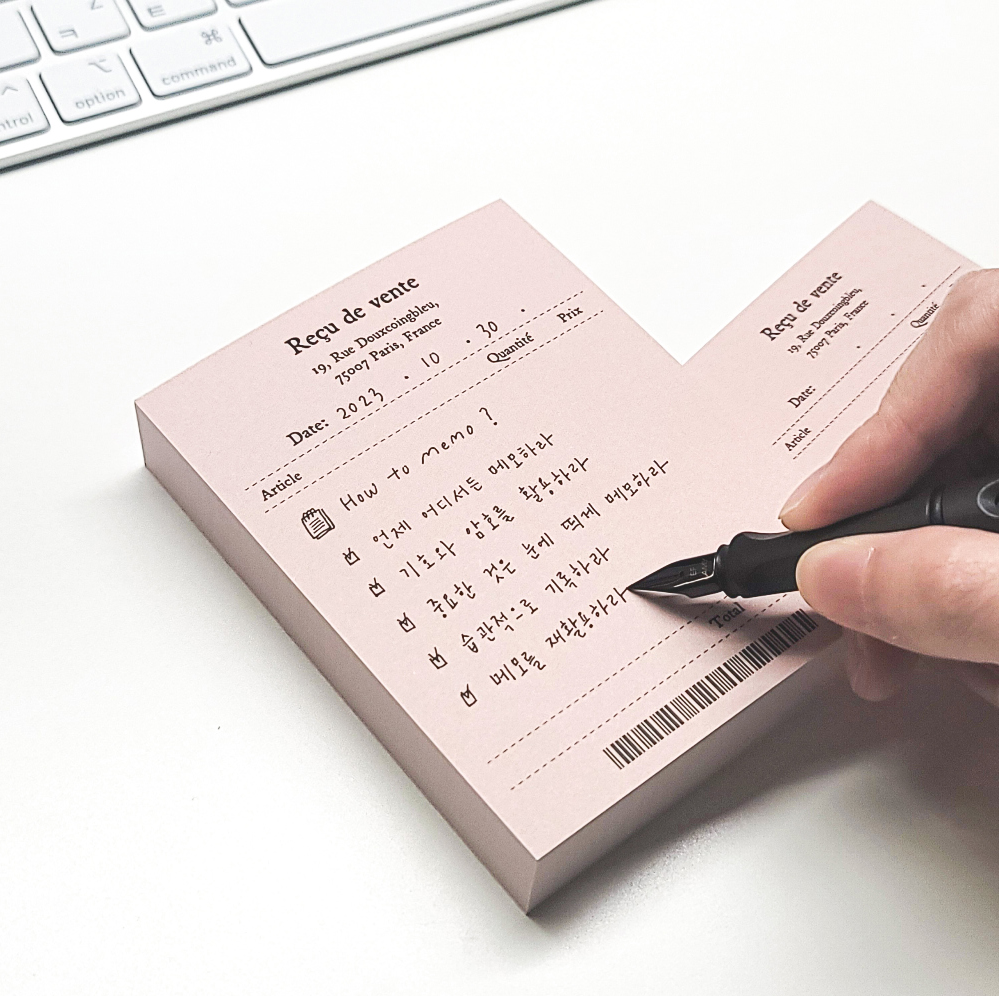 ㅋ
ㅌ
⌘
command
⌥
option
Reçu de vente
19, Rue Douxcoingbleu,
75007 Paris, France
Date: 2023 . 10 . 30 .
Article Quantité Prix
How to memo ?
언제 어디서든 메모하라
기호와 암호를 활용하라
중요한 것은 눈에 띄게 메모하라
습관적으로 기록하라
메모를 재활용하라
Total
Reçu de vente
19, Rue Douxcoingbleu,
75007 Paris, France
Date:
Article Quantité